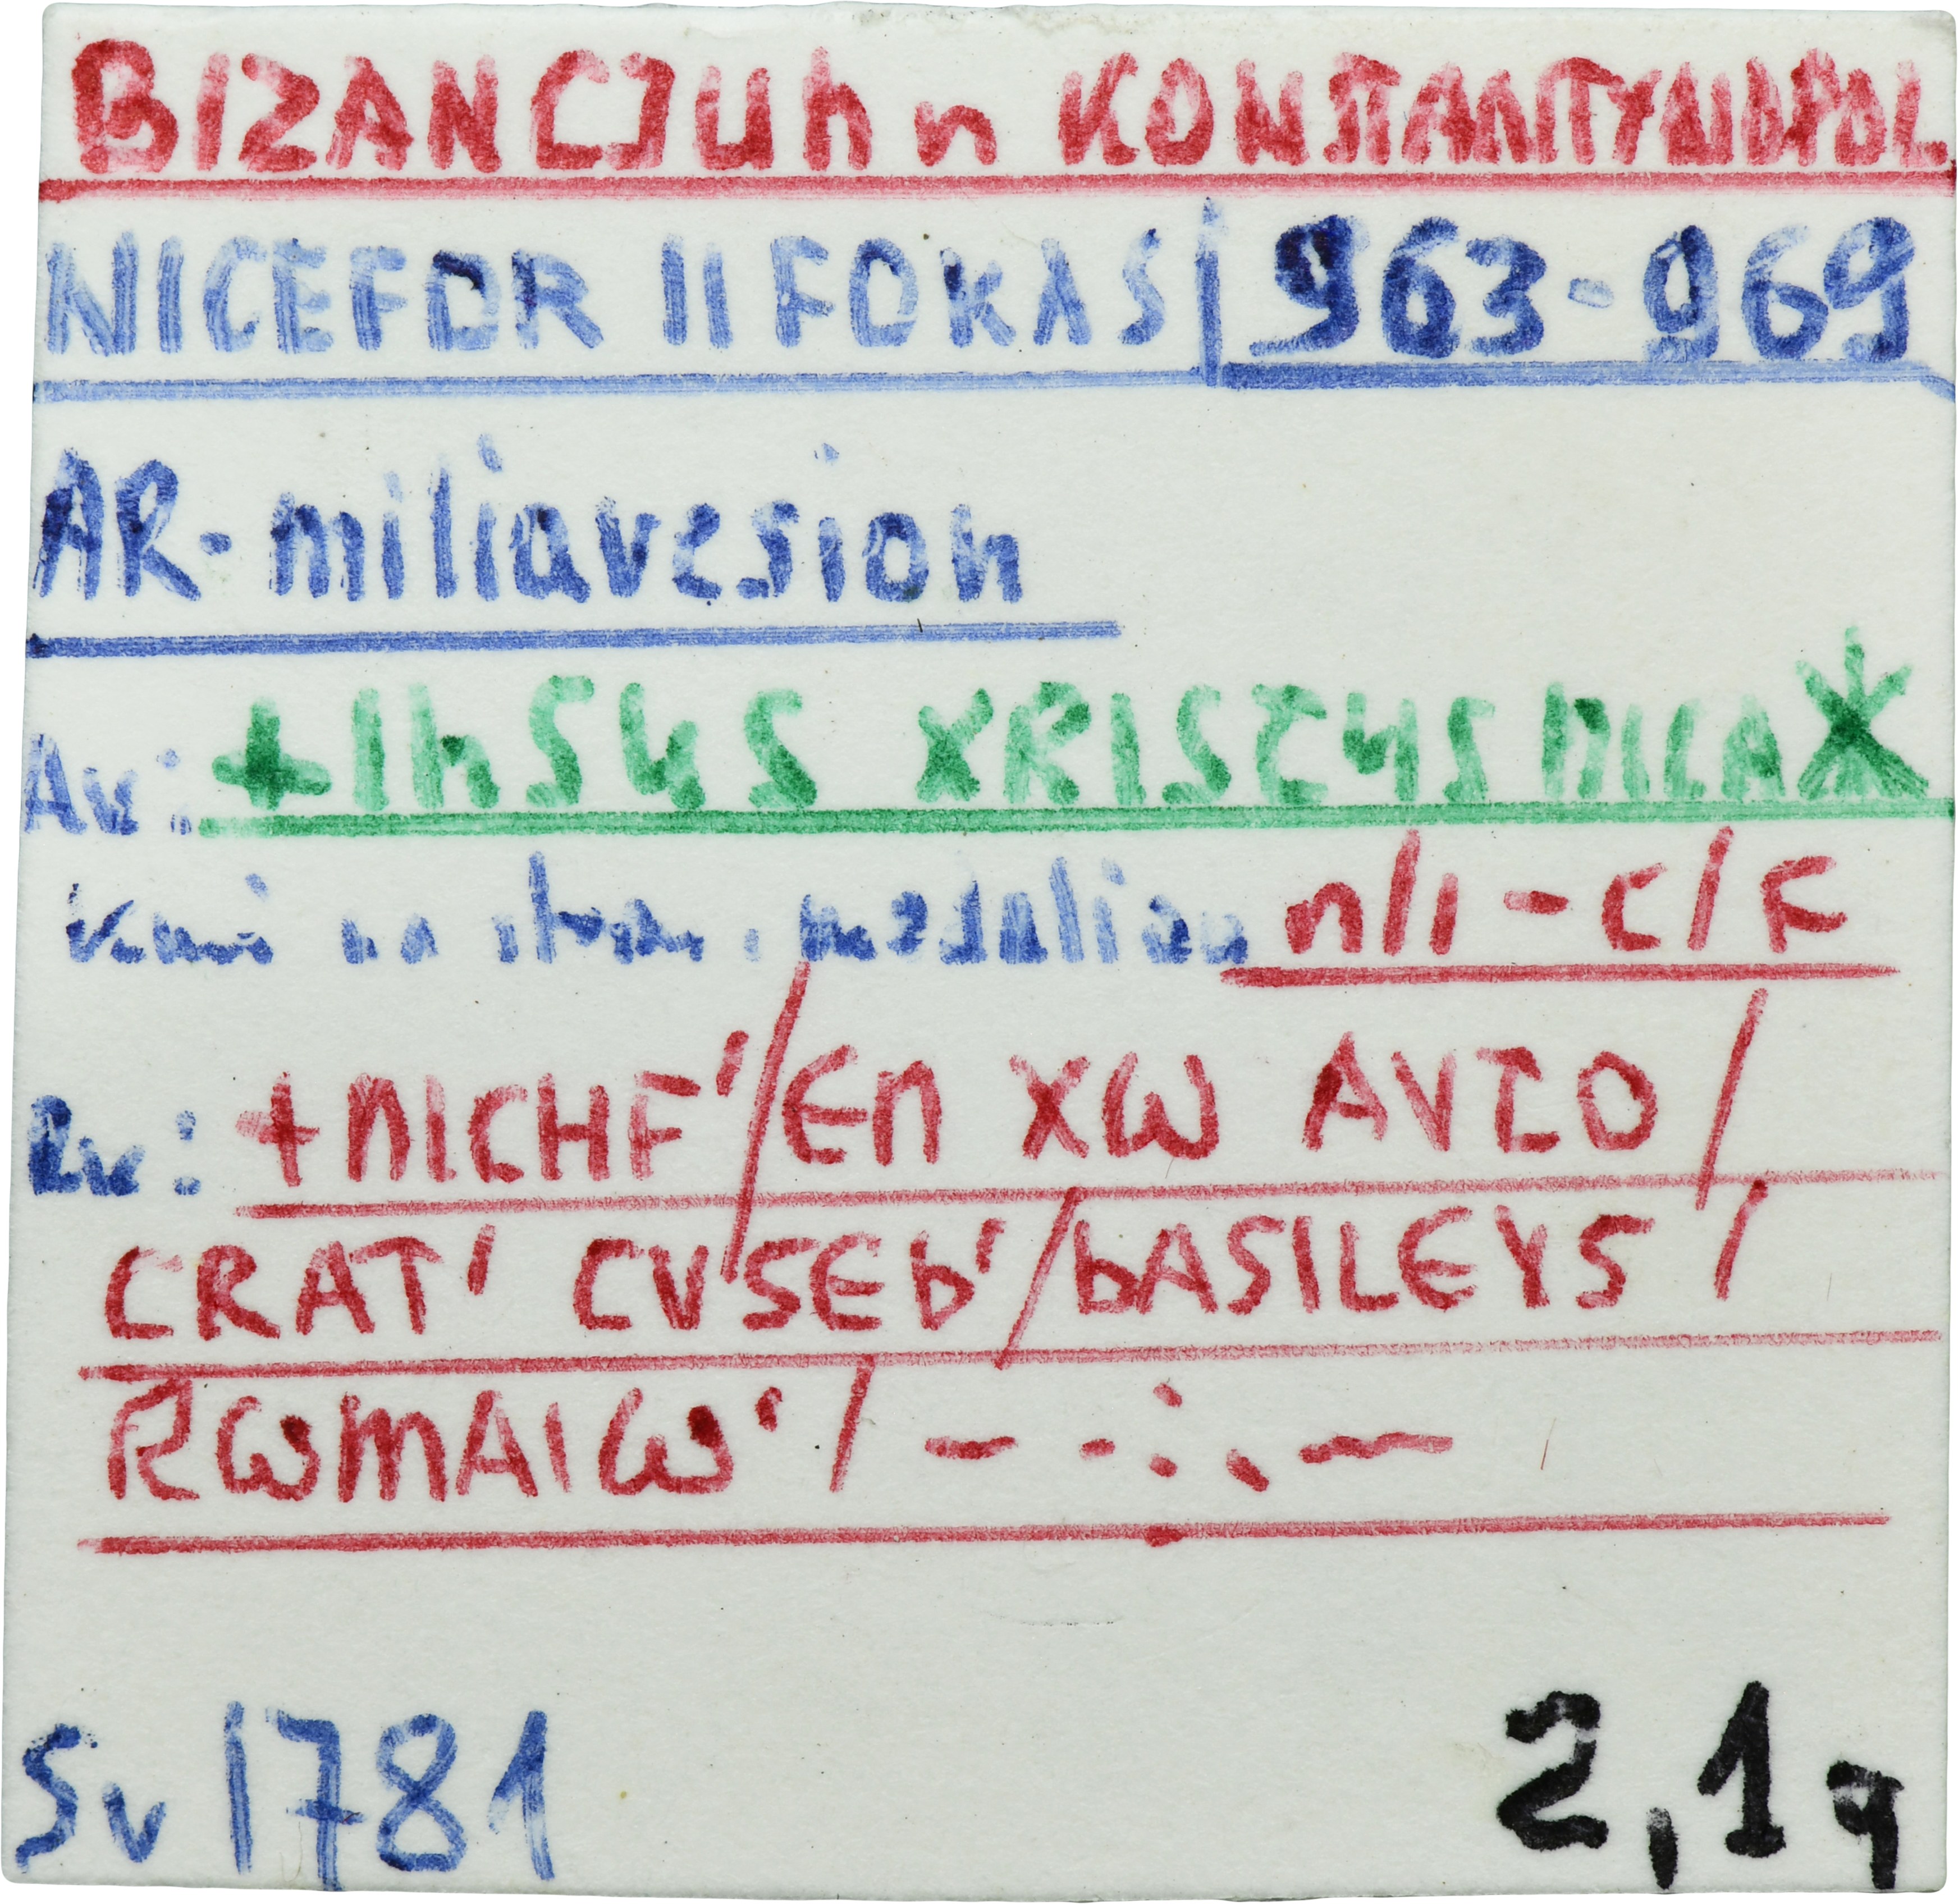 BIZANCJUM n KONSTANTYNOPOL
NICEFOR II FOKAS 963-969
AR-miliaresion
Av: +IhSЧS XRISTЧS NICA✳
na medalion n/I-C/F
Rv: +NICHF'/ЄN XѠ AVTO/
CRAT' CVSЄb'/bASILЄYS'/
RѠMAIѠ'/ - · ∴ · -
Sv 1781 2,1g